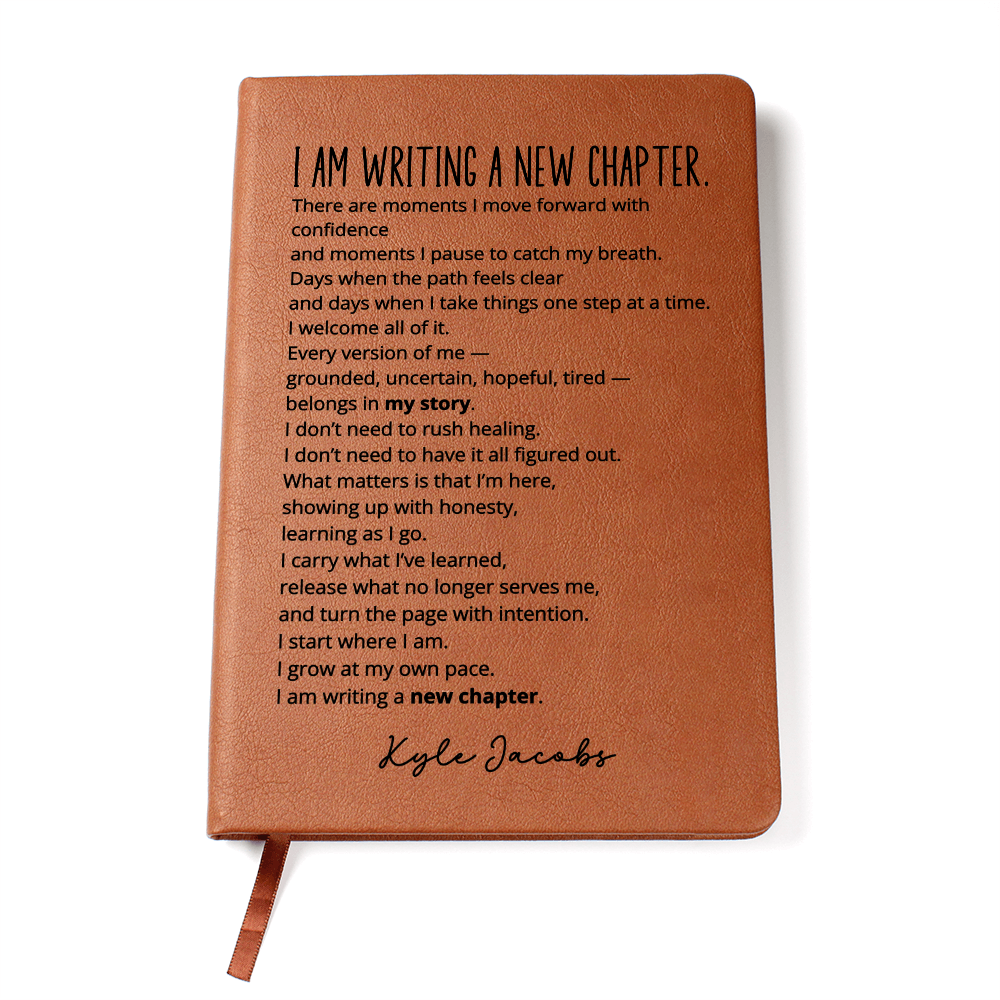 I AM WRITING A NEW CHAPTER.
There are moments I move forward with
confidence
and moments I pause to catch my breath.
Days when the path feels clear
and days when I take things one step at a time.
I welcome all of it.
Every version of me —
grounded, uncertain, hopeful, tired —
belongs in my story.
I don’t need to rush healing.
I don’t need to have it all figured out.
What matters is that I’m here,
showing up with honesty,
learning as I go.
I carry what I’ve learned,
release what no longer serves me,
and turn the page with intention.
I start where I am.
I grow at my own pace.
I am writing a new chapter.
Kyle Jacobs